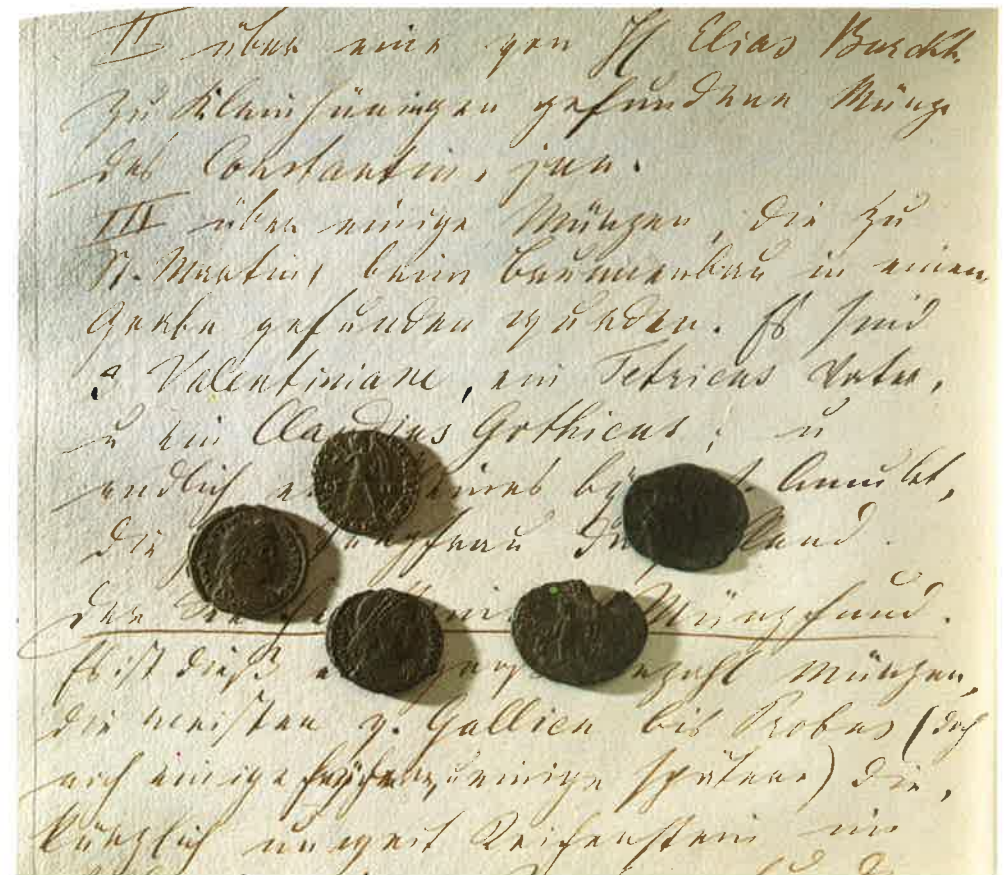 II über eine von H Elias Burckh.
zu Kleinhüningen gefundene Münze
des Constantin. jun.
III über einige Münzen, die zu
St. Martin beim Brunnenbau in einem
Grabe gefunden wurden. Es sind
Valentiniane, ein Tetricus Vater,
u ein Claudius Gothicus; u
endlich ein
die Jungfrau
der Münzfund.
Es ist dieß Münzen,
die meisten v. Gallien bis Probus (doch
auch einige frühere, u einige spätere) die,
kürzlich unweit Reifenstein im